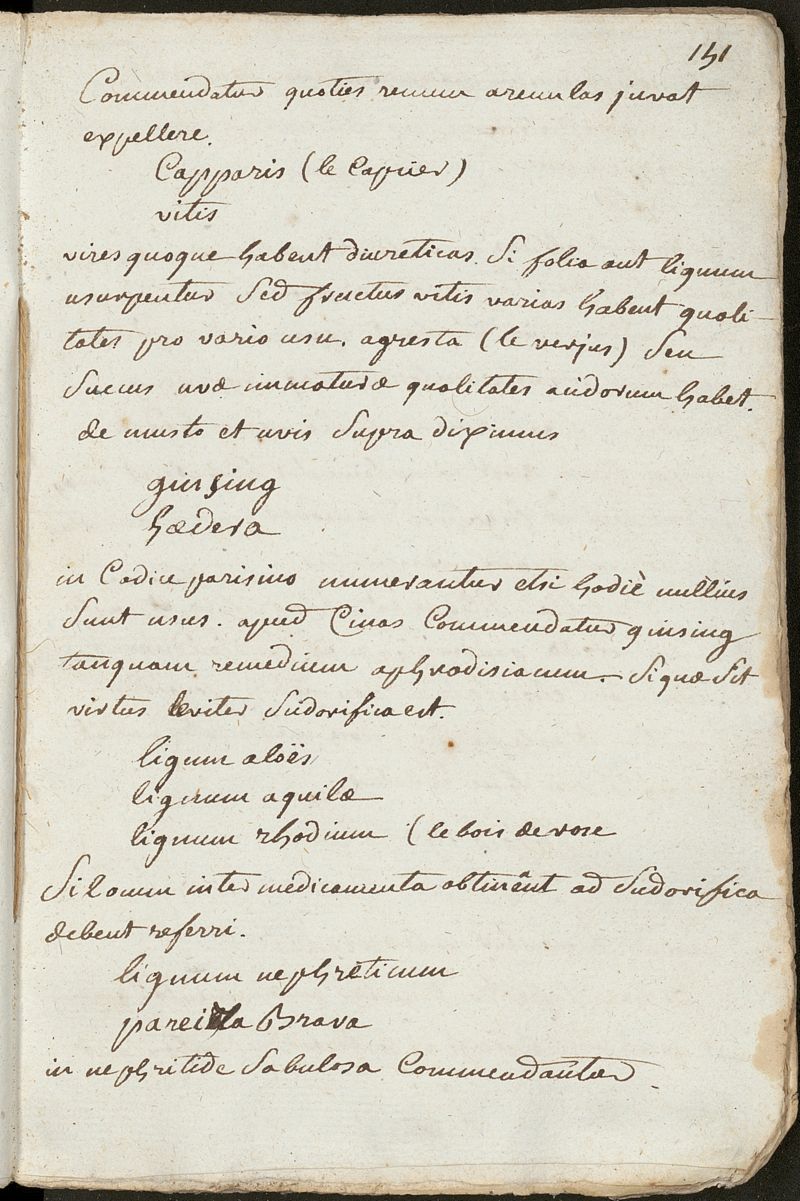 151
Commendatur quoties renum arenulas juvat
expellere.
Capparis (le Caprier)
vitis
vires quoque habent diureticas. Si folia aut lignum
usurpentur Sed fructus vitis varias habent quali-
tates pro vario usu. agresta (le verjus) Seu
Succus uvæ immaturæ qualitates acidorum habet.
de musto et uvis Supra diximus
ginsing
hædera
in Codice parisino numerantur etsi hodiè nullius
Sunt usus. apud Cinas Commendatur ginsing
tanquam remedium aphrodisiacum. Si quæ Sit
virtus leviter Sudorifica est.
ligum aloës
lignum aquilæ
lignum rhodium (le bois de rose
Si locum inter medicamenta obtinênt ad Sudorifica
debent referri.
lignum nephreticum
pareira Brava
in nephritide Sabulosa Commendantur.